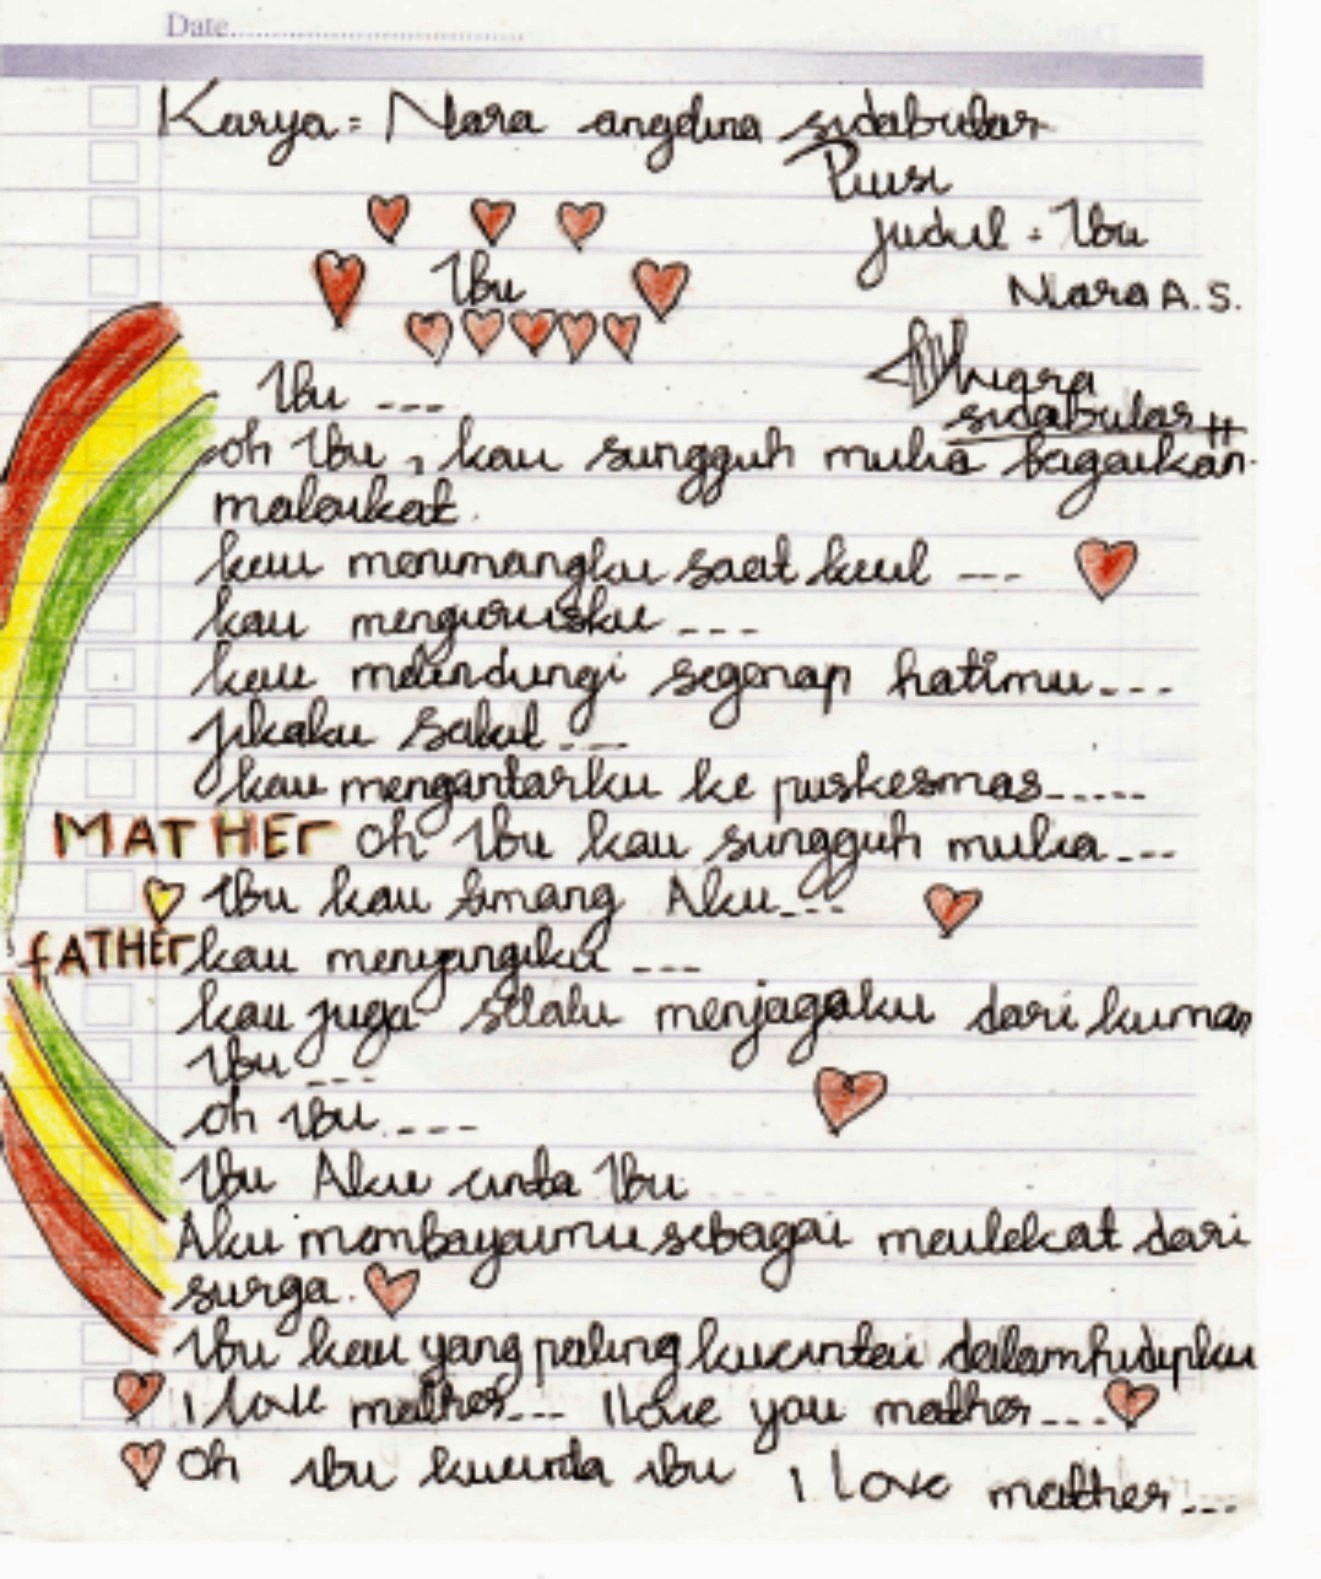 Date
Karya = Nara angelina sidabutar
Puisi
judul = Ibu
Nara A. S.
Ibu
sidabutar
Ibu ---
oh Ibu, kau sungguh mulia bagaikan
malaikat.
kau menimangku saat kecil ---
kau mengurusku ---
kau melindungi segenap hatimu ---
jikaku sakit ---
kau mengantarku ke puskesmas-----
MATHEr oh Ibu kau sungguh mulia ---
Ibu kau timang Aku ---
fATHEr kau menyangiku ---
kau juga selalu menjagaku dari kuman
Ibu ---
oh ibu ----
Ibu Aku cinta Ibu
Aku membayaimu sebagai maulekat dari
surga.
Ibu kau yang paling kucintai dalam hidupku
I love mather --- I love you mather ---
oh ibu kucinta ibu I love mather ---